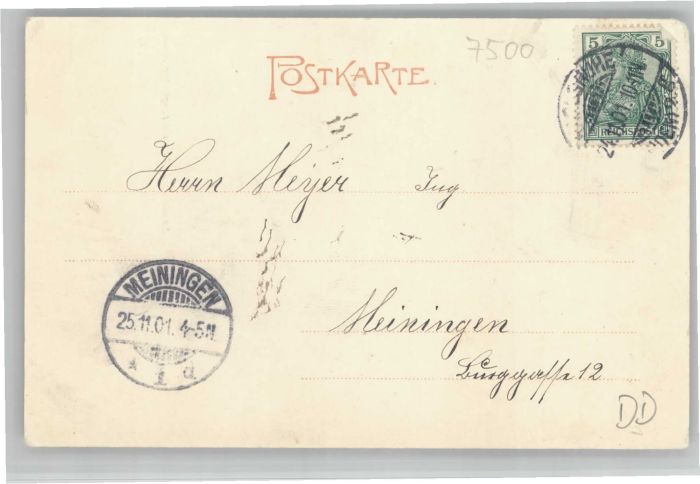 7500
POSTKARTE.
5 5
REICHSPOST
Herrn Meyer Ing
MEININGEN
25.11.01. 4-5N.
* 1 d
Meiningen
Burggasse 12
DD